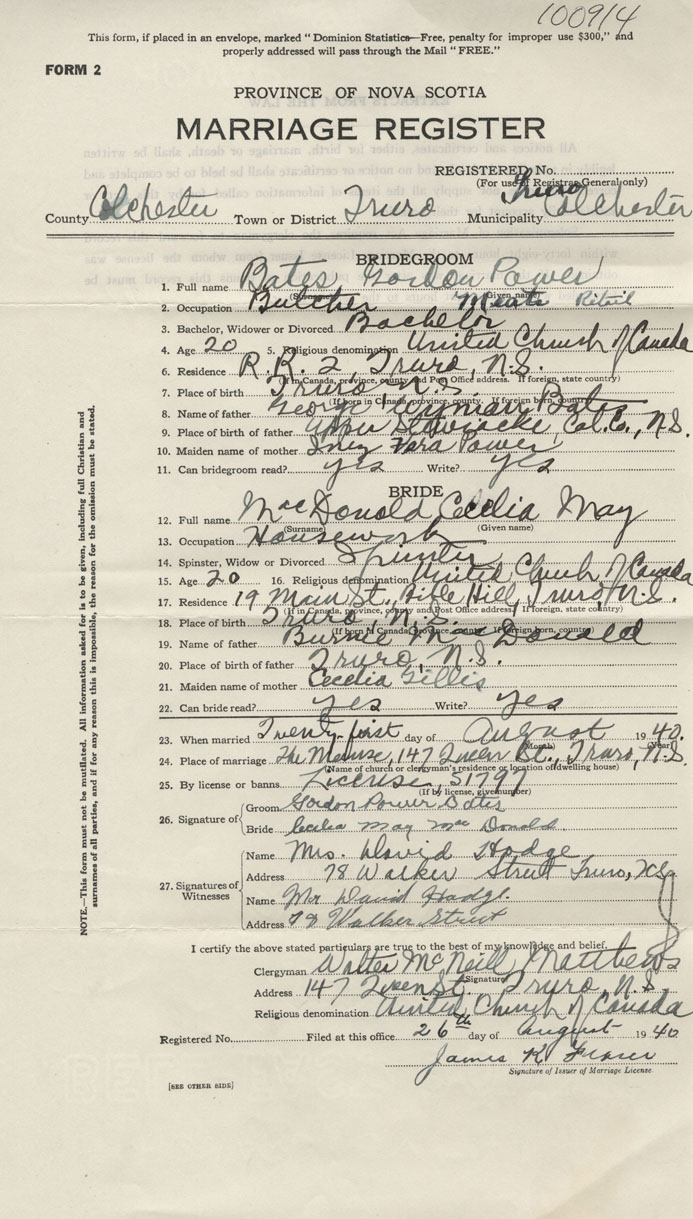 100914
This form, if placed in an envelope, marked "Dominion Statistics—Free, penalty for improper use $300," and
properly addressed will pass through the Mail "FREE."
FORM 2
PROVINCE OF NOVA SCOTIA
MARRIAGE REGISTER
REGISTERED No.
(For use of Registrar General only)
Truro
County Colchester Town or District Truro Municipality Colchester
BRIDEGROOM
1. Full name Bates Gordon Power
(Surname) (Given name)
2. Occupation Butcher Meats Retail
3. Bachelor, Widower or Divorced Bachelor
4. Age 20 5. Religious denomination United Church of Canada
6. Residence R.R. 2, Truro, N.S.
(If in Canada, province, county and Post Office address. If foreign, state country)
7. Place of birth Truro N.S.
(If born in Canada, province, county. If foreign born, country)
8. Name of father George Wyman Bates
9. Place of birth of father Upper Stewiacke, Col. Co., N.S.
10. Maiden name of mother Inez Power
11. Can bridegroom read? yes Write? yes
BRIDE
12. Full name MacDonald Cecelia May
(Surname) (Given name)
13. Occupation Housework
14. Spinster, Widow or Divorced Spinster
15. Age 20 16. Religious denomination United Church of Canada
17. Residence 19 Main St., Bible Hill, Truro, N.S.
(If in Canada, province, county and Post Office address. If foreign, state country)
18. Place of birth Truro, N.S.
(If born in Canada, province, county. If foreign born, country)
19. Name of father MacDonald
20. Place of birth of father Truro, N.S.
21. Maiden name of mother Cecelia Gillis
22. Can bride read? yes Write? yes
23. When married Twenty-first day of August 1940.
(Month) (Year)
24. Place of marriage The Manse, 147 Queen St., Truro, N.S.
(Name of church or clergyman's residence or location of dwelling house)
25. By license or banns License, 51791
(If by license, give number)
26. Signature of
Groom Gordon Power Bates
Bride Cecilia May MacDonald
27. Signatures of Witnesses
Name Mrs. David Hodge
Address 78 Walker Street Truro, N.S.
Name Mr David Hodge.
Address 78 Walker Street
I certify the above stated particulars are true to the best of my knowledge and belief.
Clergyman Walter McNeill Matthews
(Signature)
Address 147 Queen St. Truro, N.S.
Religious denomination United Church of Canada
Registered No. Filed at this office 26th day of August 1940
James K. Fraser
Signature of Issuer of Marriage License.
[SEE OTHER SIDE]
NOTE.—This form must not be mutilated. All information asked for is to be given, including full Christian and
surnames of all parties, and if for any reason this is impossible, the reason for the omission must be stated.